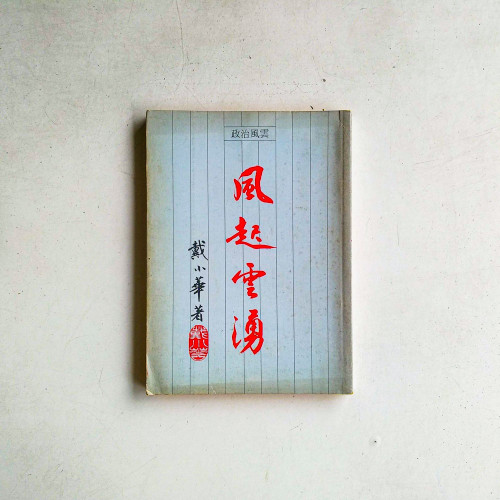 政治風雲
風起雲湧
戴小華著